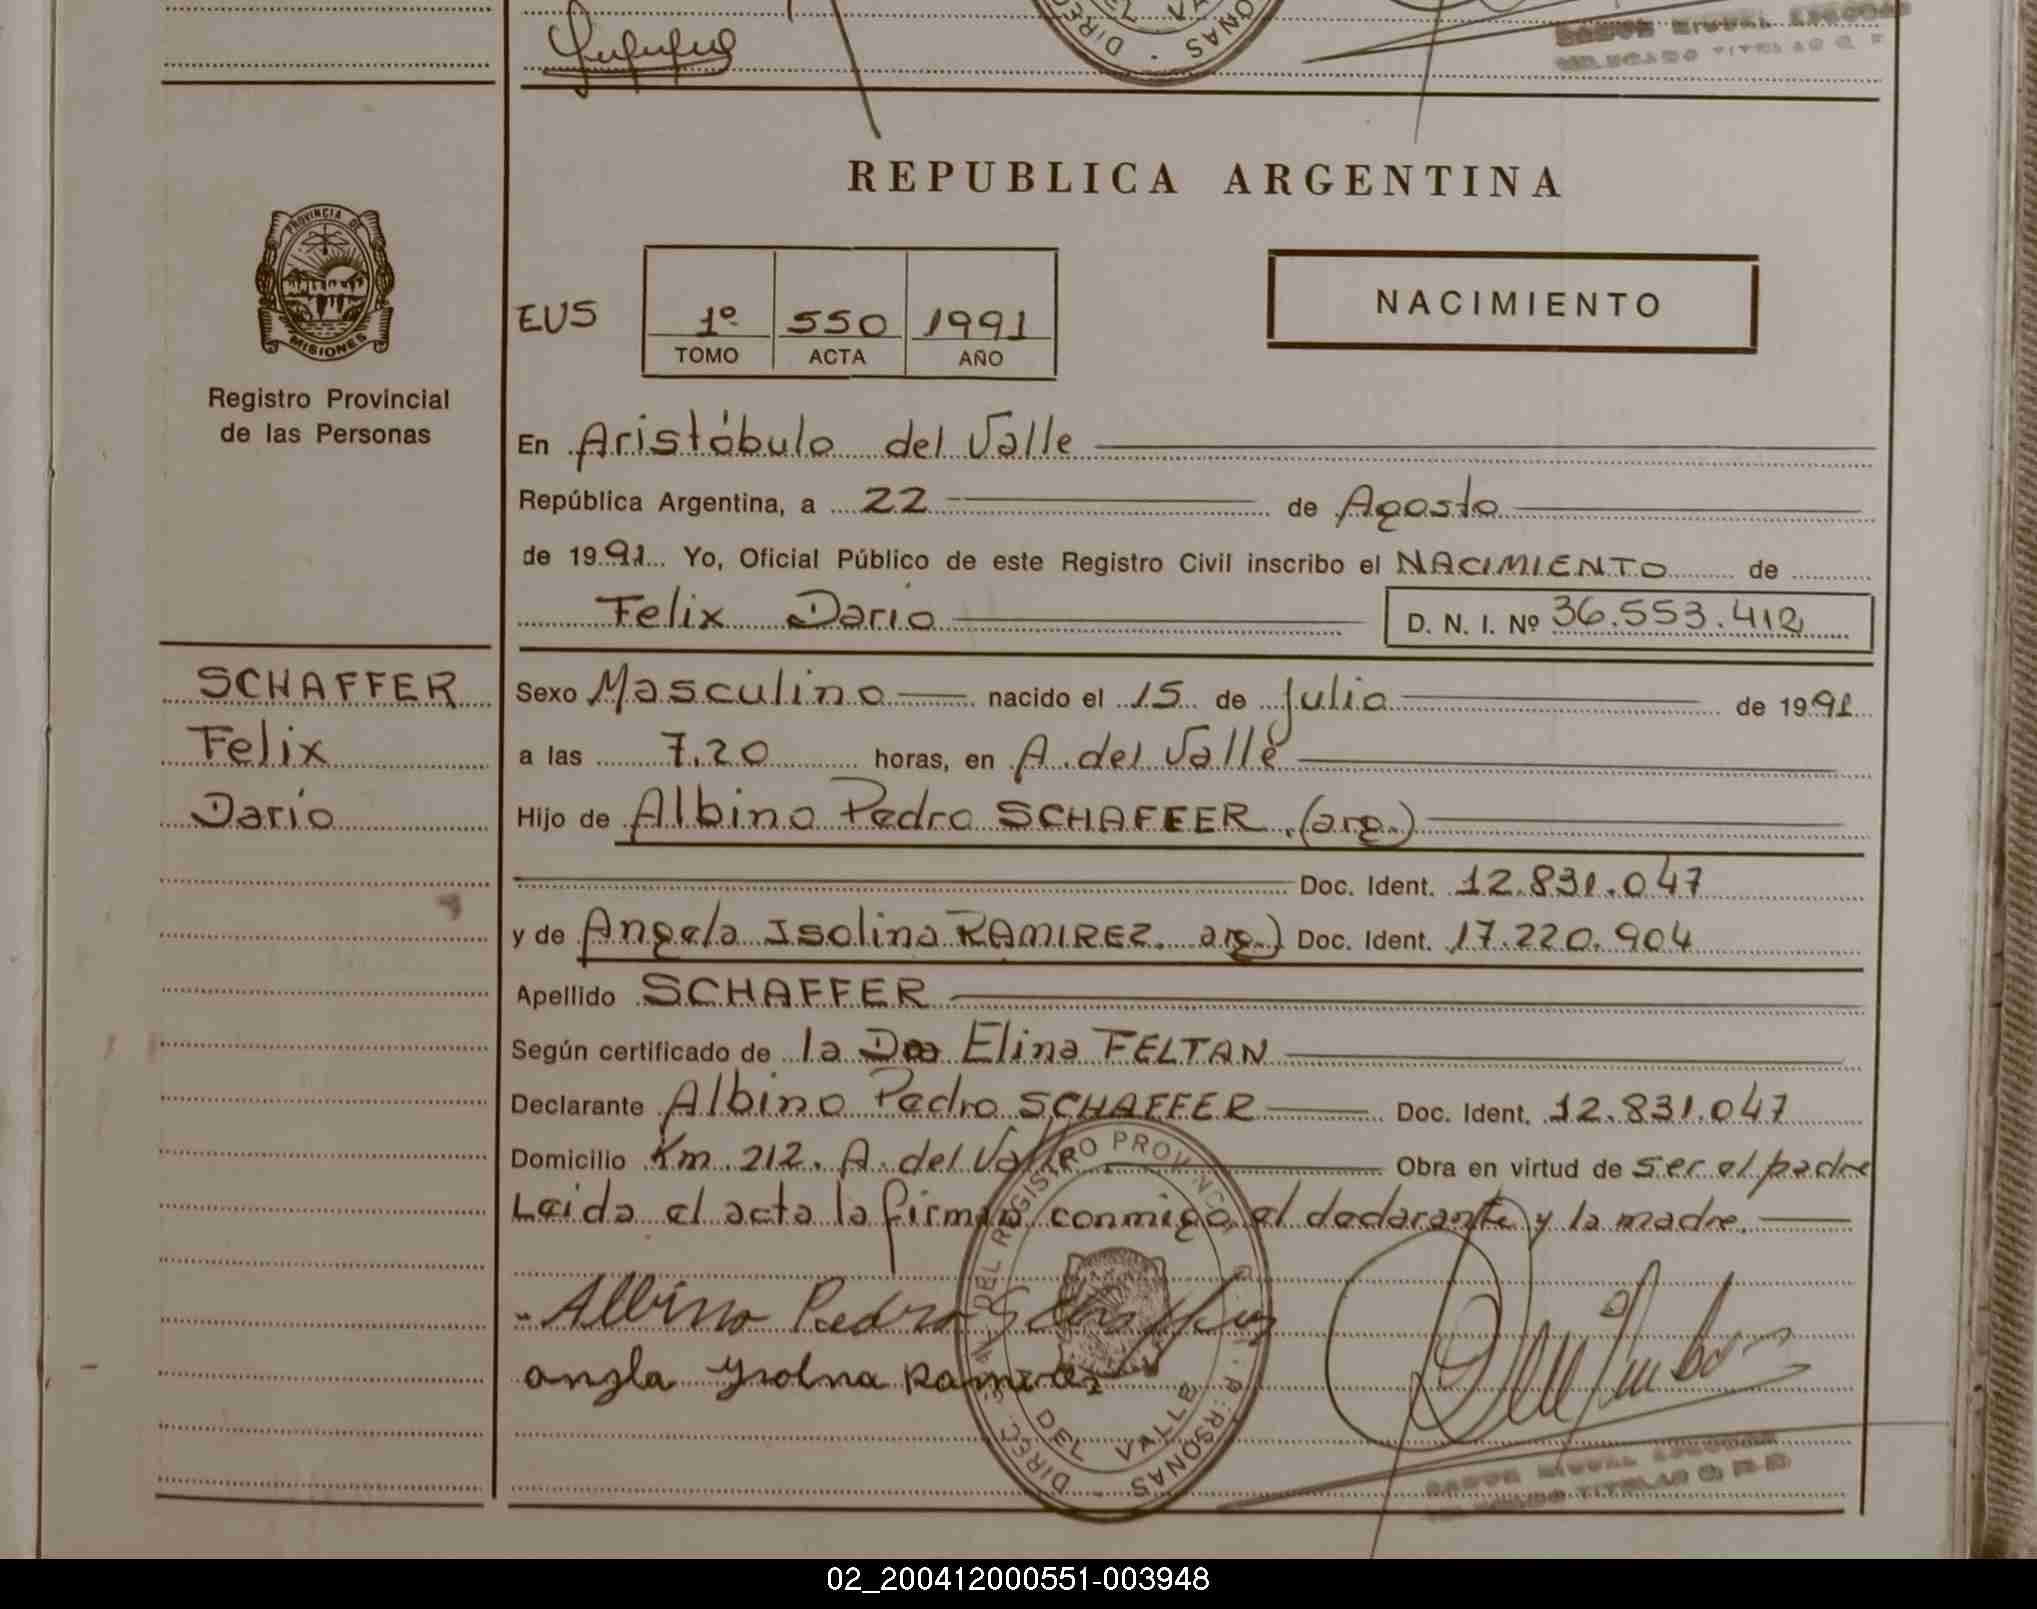 REPUBLICA ARGENTINA
PROVINCIA DE
MISIONES
Registro Provincial
de las Personas
SCHAFFER
Felix
Darío
EUS
1º 550 1991
TOMO ACTA AÑO
NACIMIENTO
En Aristóbulo del Valle
República Argentina, a 22 de Agosto
de 1991 Yo, Oficial Público de este Registro Civil inscribo el NACIMIENTO de
Felix Dario D. N. I. Nº 36.553.412
Sexo Masculino nacido el 15 de Julio de 1991
a las 7.20 horas, en A. del Valle
Hijo de Albino Pedro SCHAFFER (arg.)
Doc. Ident. 12.831.047
y de Angela Isolina RAMIREZ. arg.) Doc. Ident. 17.220.904
Apellido SCHAFFER
Según certificado de la Dra Elina FELTAN
Declarante Albino Pedro SCHAFFER Doc. Ident. 12.831.047
Domicilio Km 212. A. del Valle Obra en virtud de ser el padre
Leida el acta la firman conmigo el declarante y la madre.
Albino Pedro Schaffer
angla ysolna Ramirez
DIREC. GRAL. DEL REGISTRO PROVINCIAL DE LAS PERSONAS
DEL VALLE
02_200412000551-003948